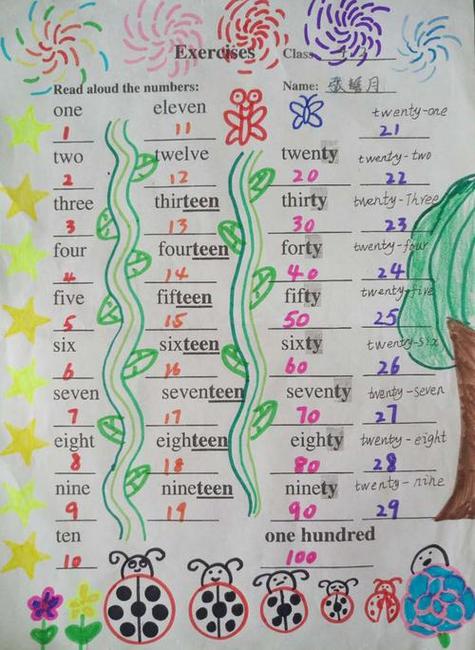 Exercises Class
Read aloud the numbers: Name:
one eleven twenty-one
1 11 21
two twelve twenty twenty-two
2 12 20 22
three thirteen thirty twenty-Three
3 13 30 23
four fourteen forty twenty-four
4 14 40 24
five fifteen fifty twenty-five
5 15 50 25
six sixteen sixty twenty-six
6 16 60 26
seven seventeen seventy twenty-seven
7 17 70 27
eight eighteen eighty twenty-eight
8 18 80 28
nine nineteen ninety twenty-nine
9 19 90 29
ten one hundred
10 100